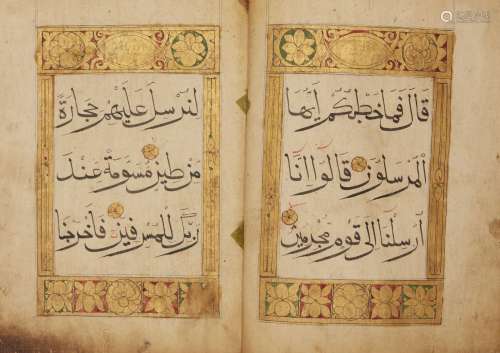 قَالَ فَمَا خَطْبُكُمْ أَيُّهَا
الْمُرْسَلُونَ قَالُوا إِنَّا
أُرْسِلْنَا إِلَى قَوْمٍ مُجْرِمِينَ
لِنُرْسِلَ عَلَيْهِمْ حِجَارَةً
مِنْ طِينٍ مُسَوَّمَةً عِنْدَ
رَبِّكَ لِلْمُسْرِفِينَ فَأَخْرَجْنَا